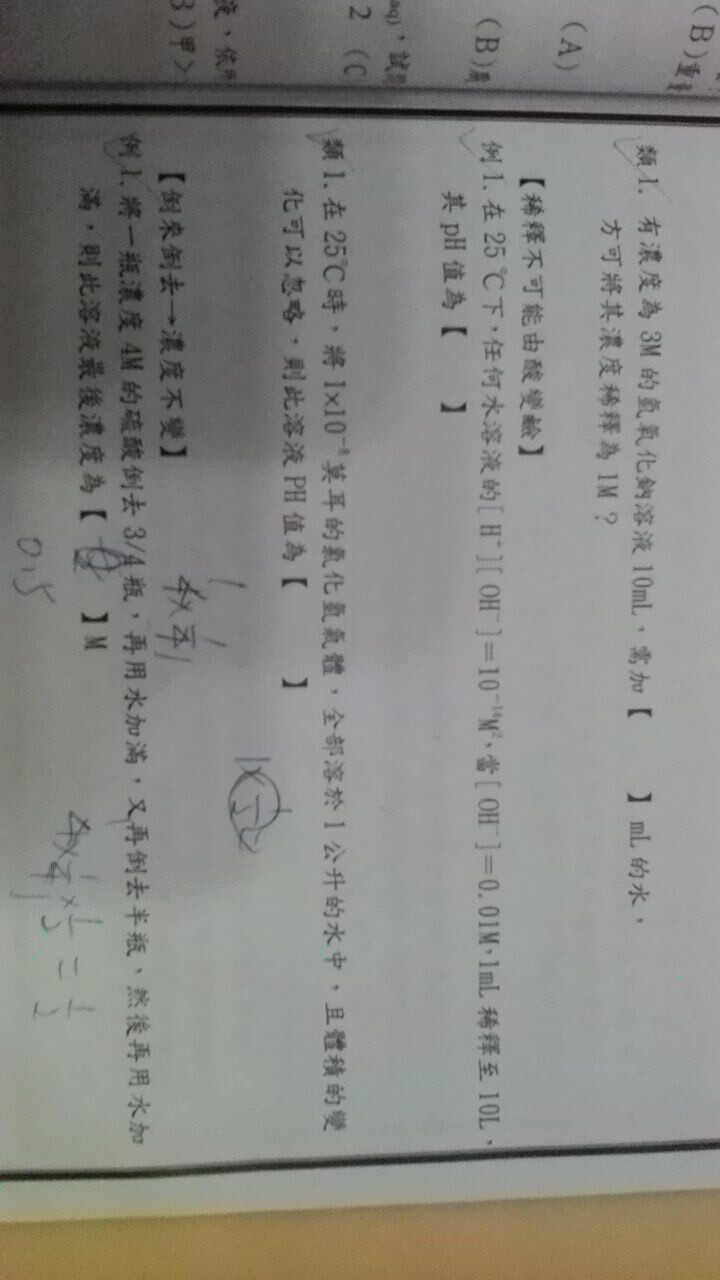 (B)重
(A)
(B)
aq)，試
2 (C
液，依
3)甲>
類1. 有濃度為 3M 的氫氧化鈉溶液 10mL，需加【　　】mL 的水，
方可將其濃度稀釋為 1M？
【稀釋不可能由酸變鹼】
例1. 在 25℃下，任何水溶液的[H⁺][OH⁻]=10⁻¹⁴M²，當[OH⁻]=0.01M，1mL 稀釋至 10L，
其 pH 值為【　　】
類1. 在 25℃時，將 1×10⁻⁸莫耳的氯化氫氣體，全部溶於 1 公升的水中，且體積的變
化可以忽略，則此溶液 PH 值為【　　】
1×1/2
【倒來倒去→濃度不變】
4×1/4
例1. 將一瓶濃度 4M 的硫酸倒去 3/4 瓶，再用水加滿，又再倒去半瓶，然後再用水加
滿，則此溶液最後濃度為【　　】M
0.5
4×1/4×1/2=1/2